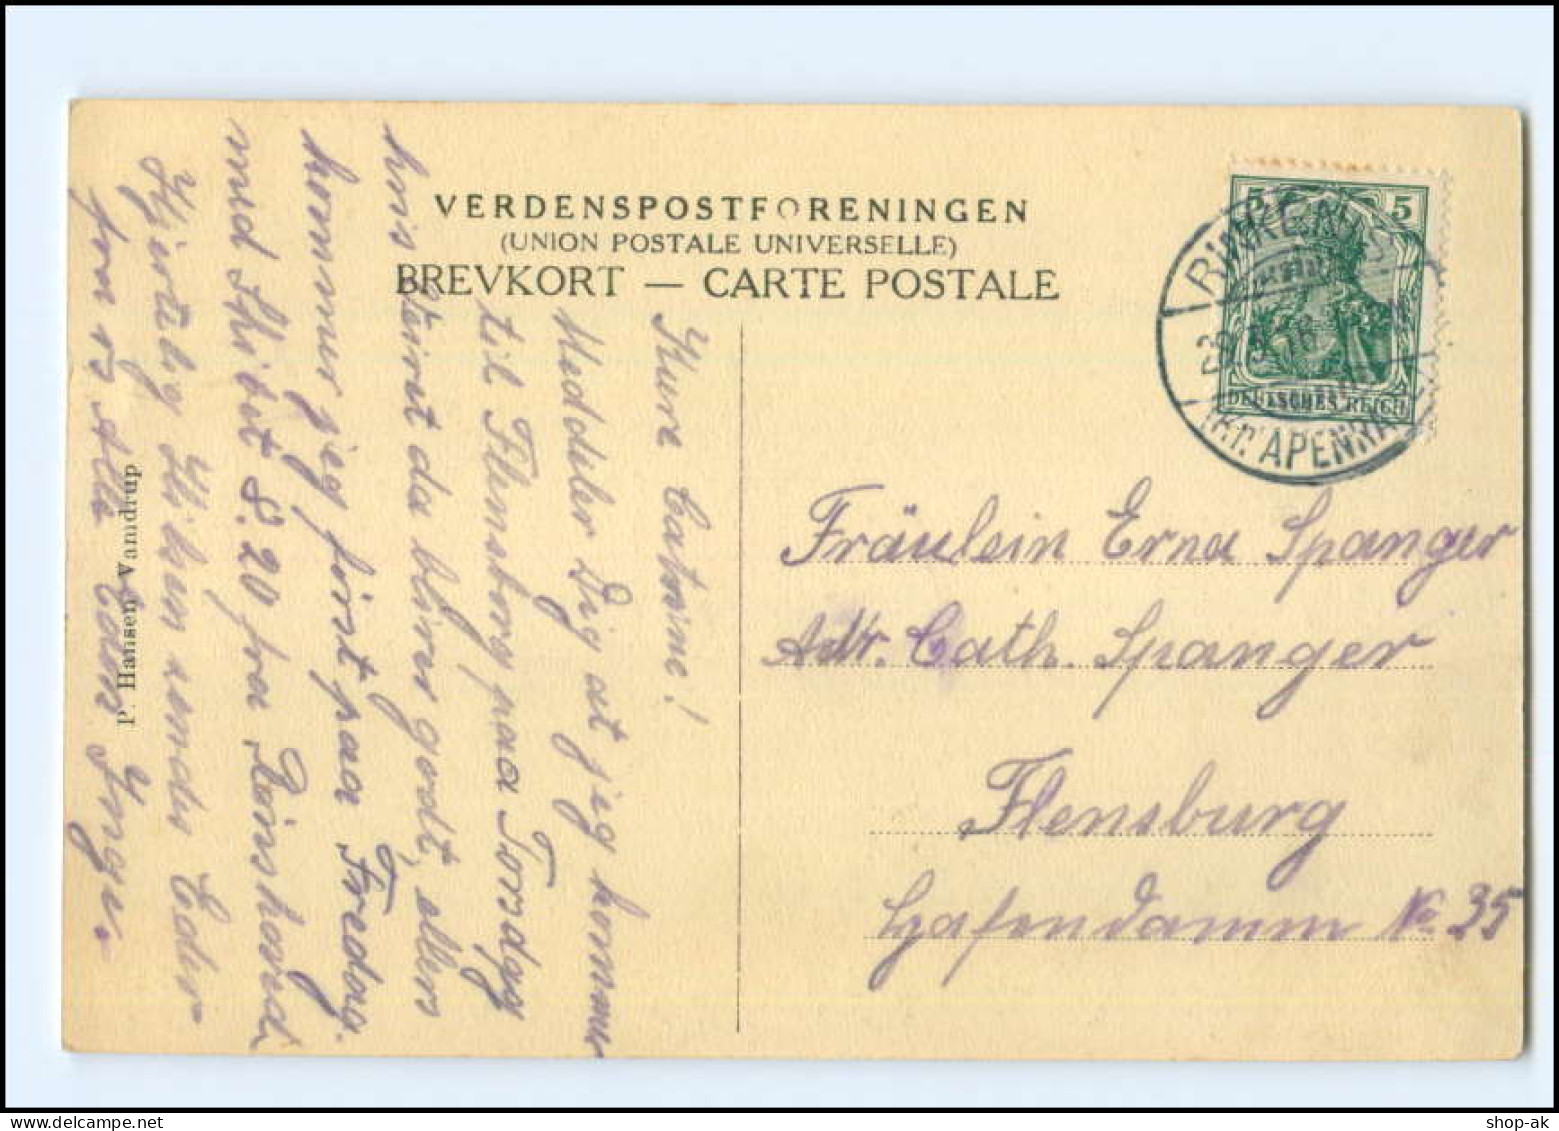 VERDENSPOSTFORENINGEN
(UNION POSTALE UNIVERSELLE)
BREVKORT — CARTE POSTALE
5 5
DEUTSCHES REICH
RINKENIS
(Kr. APENRADE)
Kære
Meddeler Dig at jeg kommer
til Flensborg paa Torsdag
hvis Veiret da bliver godt, ellers
kommer jeg først paa Fredag.
med Skibet 8.20 fra
Hjertelig Hilsen sendes Eder
fra os Alle Eders Inger
P. Hansen Vandrup
Fräulein Erna Spanger
Adr. Cath. Spanger
Flensburg
Hafendamm No 35
shop-ak